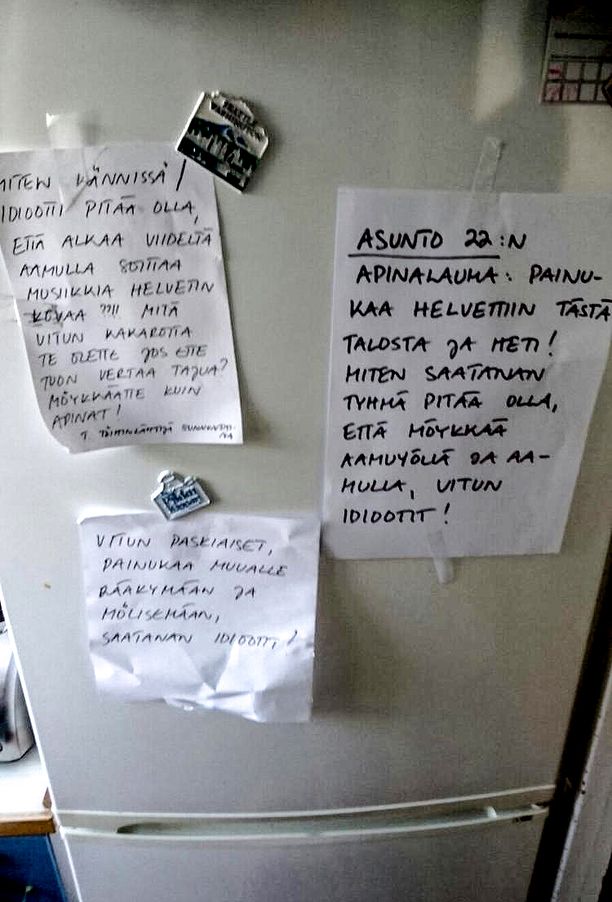 MITEN KÄNNISSÄ/
IDIOOTTI PITÄÄ OLLA,
ETTÄ ALKAA VIIDELTÄ
AAMULLA SOITTAA
MUSIIKKIA HELVETIN
KOVAA ??!! MITÄ
VITUN KAKAROITA
TE OLETTE JOS ETTE
TUON VERTAA TAJUA?
MÖYKKÄÄTTE KUIN
APINAT!
T.
SEATTLE
WASHINGTON
ASUNTO 22:N
APINALAUMA: PAINU-
KAA HELVETTIIN TÄSTÄ
TALOSTA JA HETI!
MITEN SAATANAN
TYHMÄ PITÄÄ OLLA,
ETTÄ MÖYKKÄÄ
AAMUYÖLLÄ JA AA-
MULLA, VITUN
IDIOOTIT!
VITUN PASKIAISET,
PAINUKAA MUUALLE
RÄÄKYMÄÄN JA
MÖLISEMÄÄN,
SAATANAN IDIOOTIT!